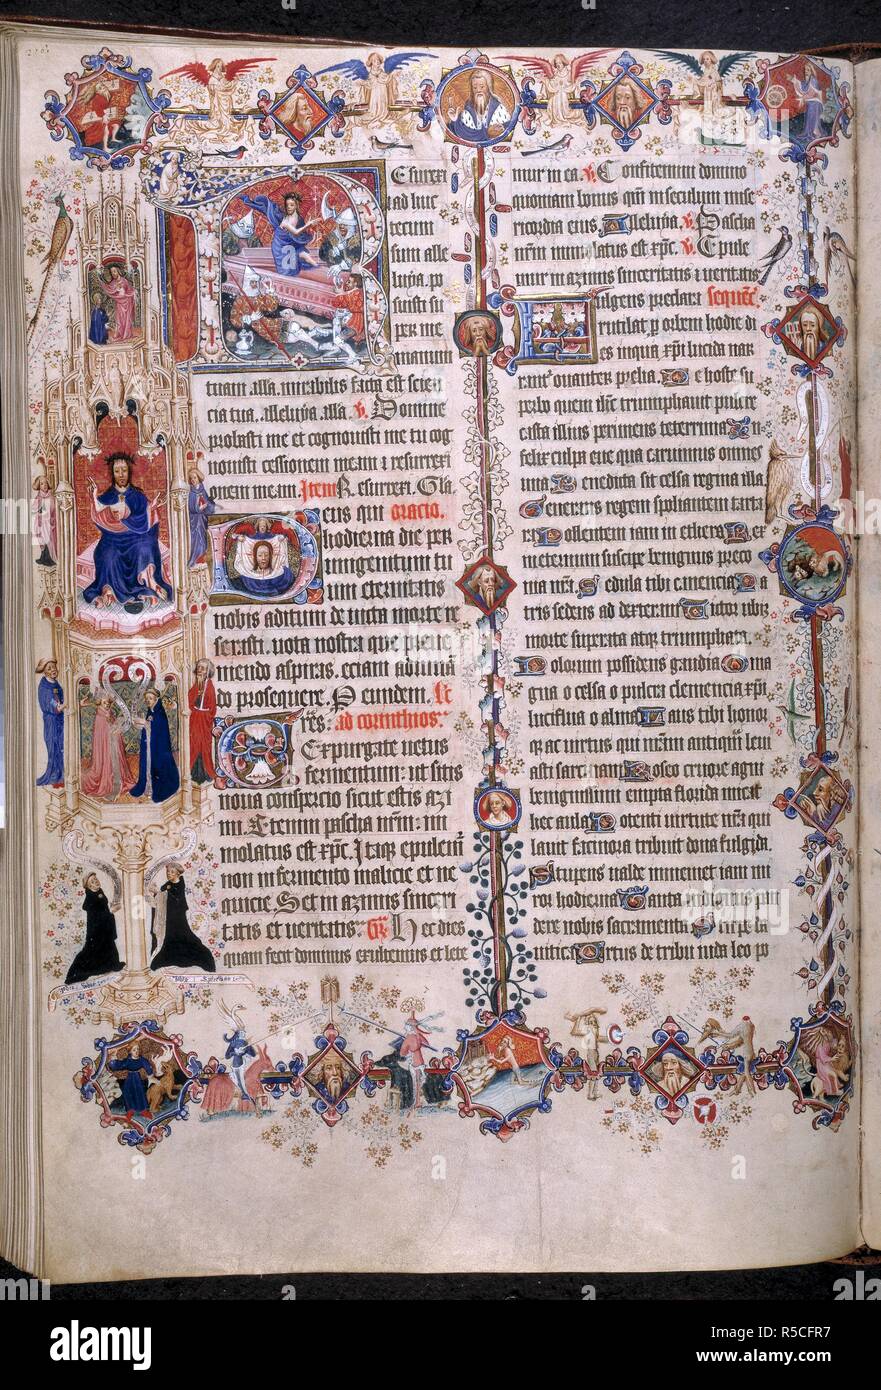 Resurexi
ad huc
tecum
sum alle
luya. po
suisti su
per me
manum
tuam. alla. mirabilis facta est scien
cia tua. alleluya. alla. V. Domine
probasti me et cognouisti me tu cog
nouisti cessionem meam & resurrexi
onem meam. Item R. esurrexi. Gla.
Deus qui oracio.
hodierna die per
unigenitum tu
um eternitatis
nobis aditum deuicta morte re
serasti. vota nostra que preue
niendo aspiras. eciam adiuuan
do prosequere. P eundem. Lc
ad corinthios.
Expurgate uetus
fermentum: ut sitis
noua conspercio sicut estis azi
mi. Etenim pascha nrm: im
molatus est xpc. Itaq epulem
non in fermento malicie et ne
quicie. Set in azimis sinceri
tatis et ueritatis. Gr. Hec dies
quam fecit dominus exultemus et lete
mur in ea. V. Confitemini domino
quoniam bonus qm in seculum mise
ricordia eius. Alleluya. V. Pascha
nrm immolatus est xpc. V. Epule
mur in azimis sinceritatis & ueritatis
Fulgens preclara sequenc
rutilat p orbem hodie di
es in qua xpi lucida nar
rant ouanter prelia. De hoste su
perbo quem ihc triumphauit pulcre
castra illius perimens teterrima. In
felix culpa eue qua caruimus omnes
uita. Benedicta sit celsa regina illa.
Generans regem spoliantem tarta
ra. Pollentem iam in ethera. Rex
in eternum suscipe benignus preco
nia nra. Sedula tibi
tris sedens ad dexteram. Victor ubiq
morte superata atq triumphata.
Polorum possidens gaudia. O ma
gna o celsa o pulcra clemencia xpi
luciflua o alma. Laus tibi honor
qz ac uirtus qui nram antiquam leui
asti sarcinam. Roseo cruore agni
benignissimi empta florida micat
hec aula. Potenti uirtute nra qui
lauit facinora tribuit dona fulgida.
Stupens ualde in memet iam mi
ror hodierna. Tanta indignis pan
dere nobis sacramenta. Stirpe da
uitica. Ortus de tribu iuda leo po
alamy
Image ID: R5CFR7
www.alamy.com